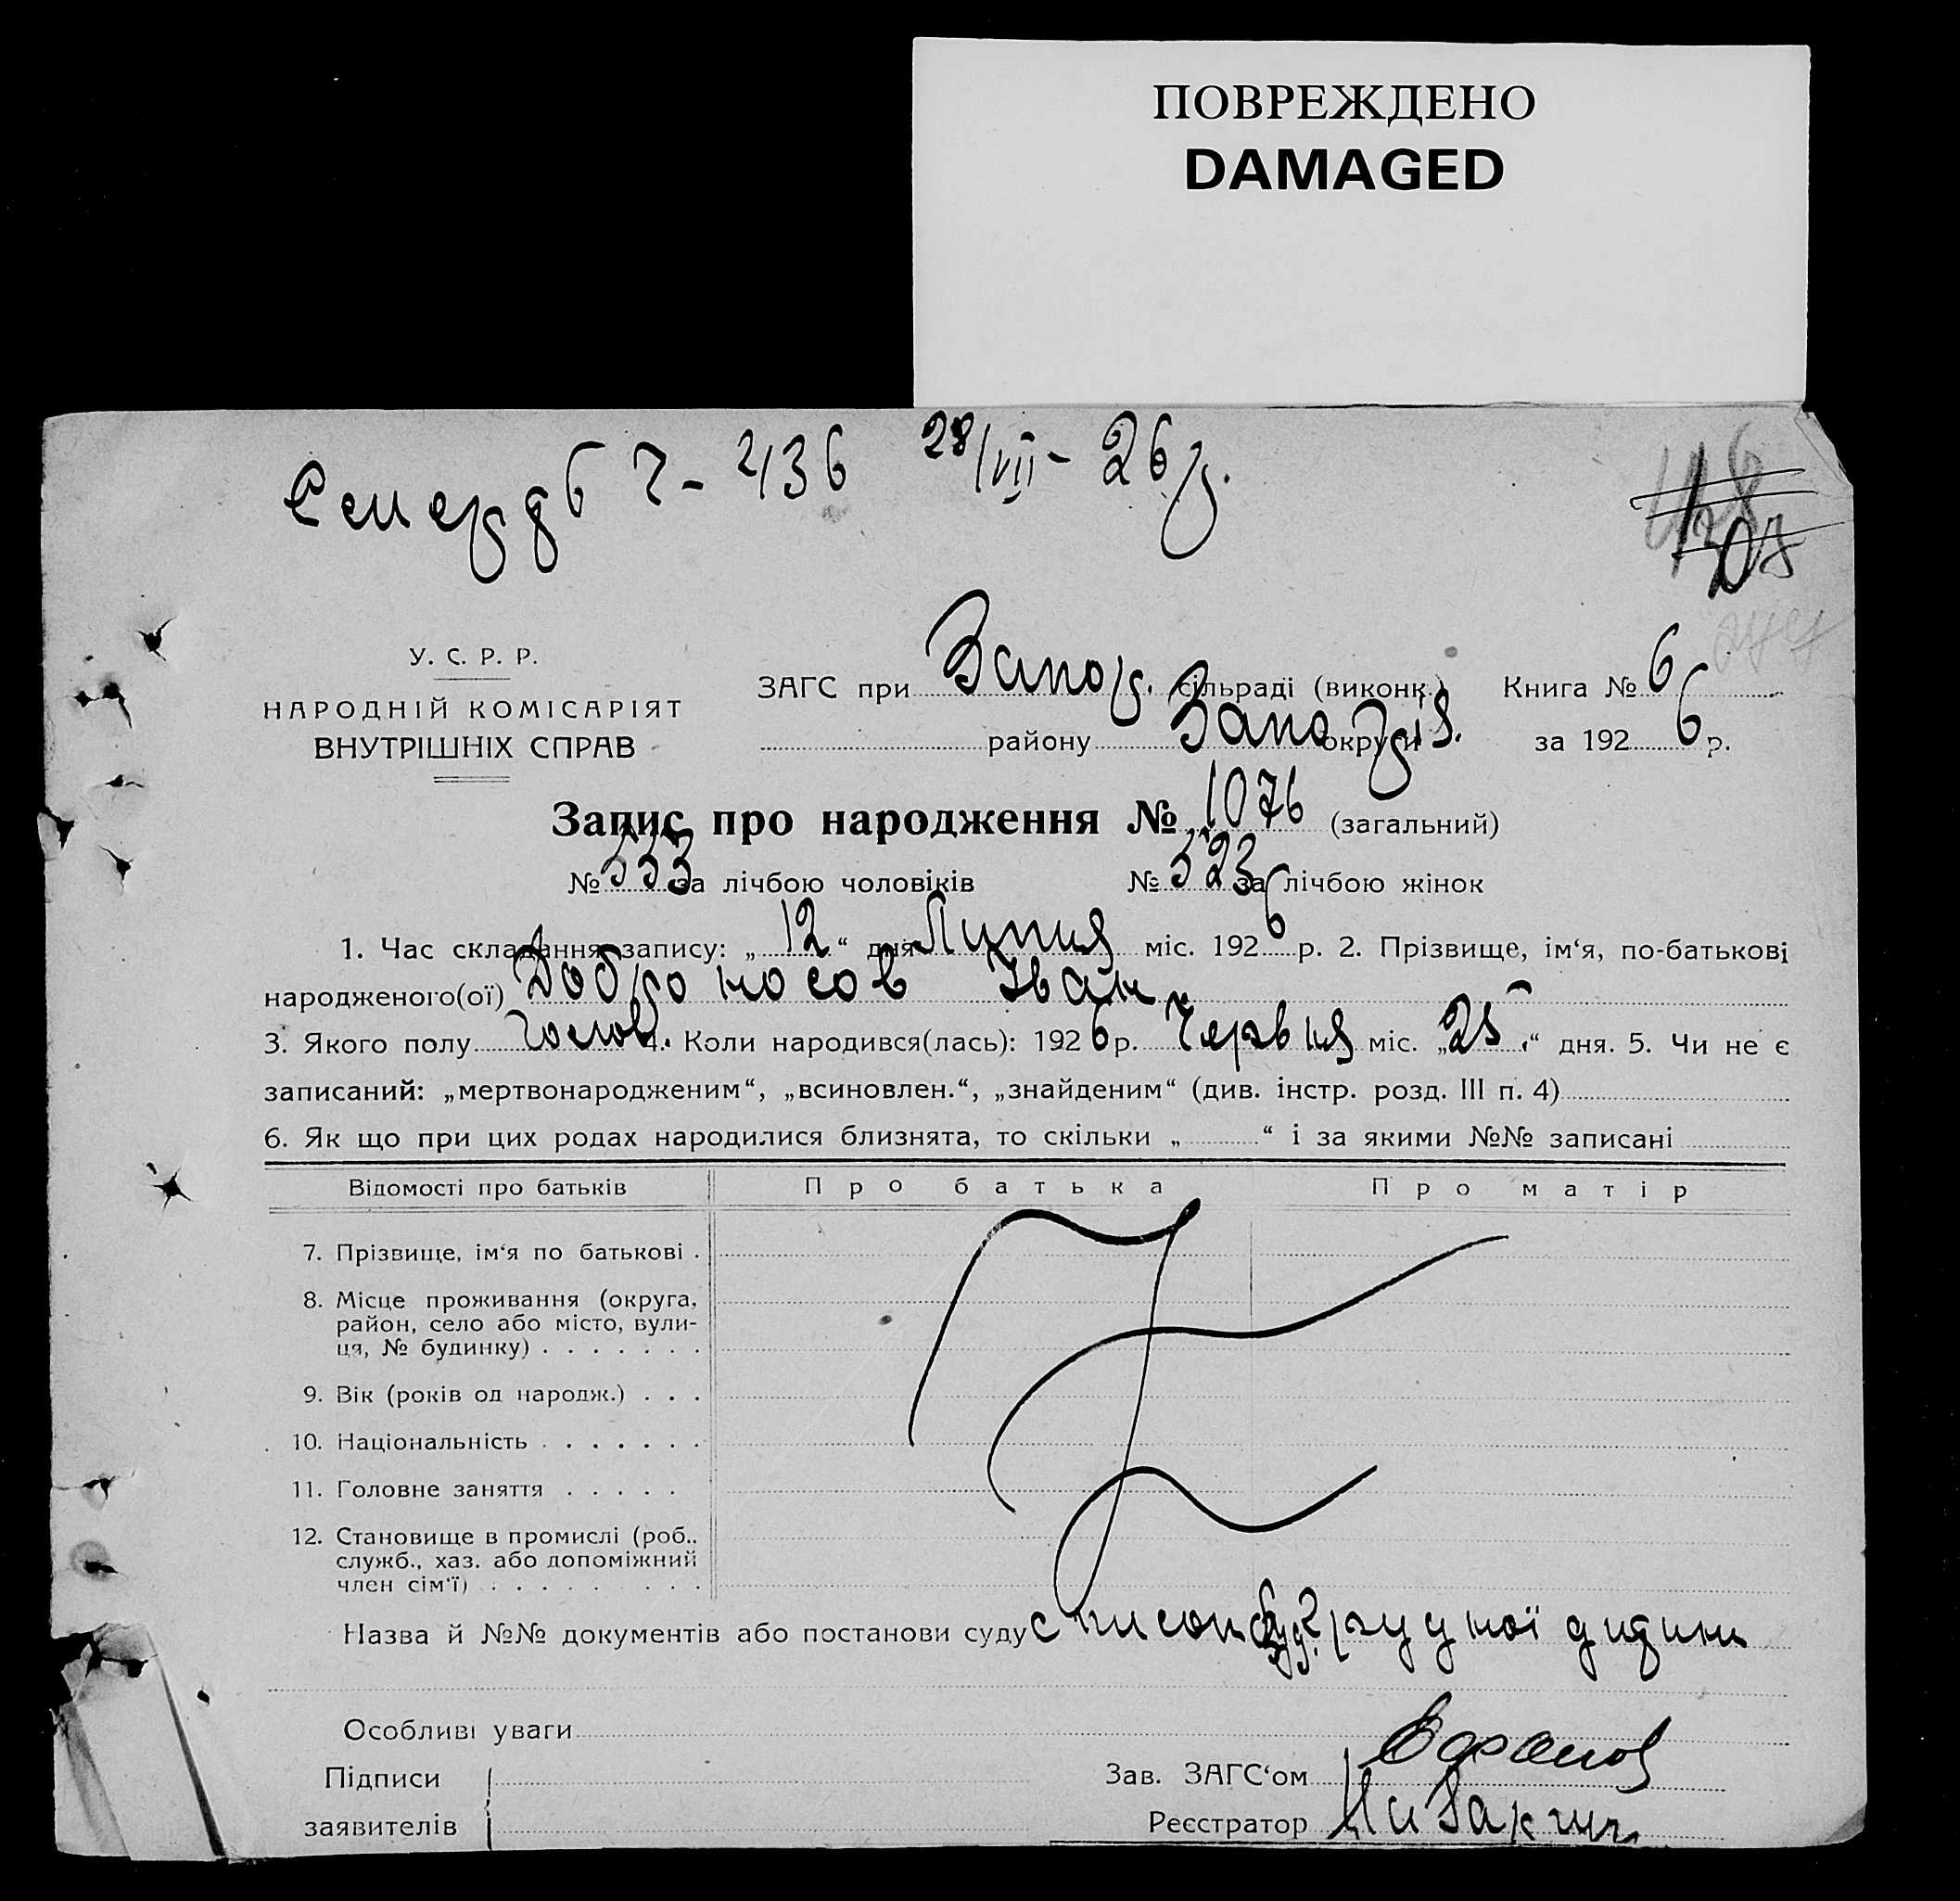 ПОВРЕЖДЕНО
DAMAGED
436 28/VII - 26 р.
У. С. Р. Р.
НАРОДНІЙ КОМІСАРІЯТ
ВНУТРІШНІХ СПРАВ
ЗАГС при Запор. сільраді (виконк.) Книга № 6
району Запоріз. округи за 1926 р.
Запис про народження № 1076 (загальний)
№ 553 за лічбою чоловіків № 523 за лічбою жінок
1. Час складання запису: „12“ дня Липня міс. 1926 р. 2. Прізвище, ім‘я, по-батькові
народженого(ої) Доброносов Іван
3. Якого полу чолов. 4. Коли народився(лась): 1926 р. Червня міс. „25“ дня. 5. Чи не є
записаний: „мертвонародженим“, „всиновлен.“, „знайденим“ (див. інстр. розд. III п. 4)
6. Як що при цих родах народилися близнята, то скільки „ “ і за якими №№ записані
Відомості про батьків Про батька Про матір
7. Прізвище, ім‘я по батькові .
8. Місце проживання (округа,
район, село або місто, вули-
ця, № будинку) . . . . . . .
9. Вік (років од народж.) . . .
10. Національність . . . . . . .
11. Головне заняття . . . . .
12. Становище в промислі (роб.,
служб., хаз. або допоміжний
член сім‘ї) . . . . . . . . .
Назва й №№ документів або постанови суду список буд. грудної дитини
Особливі уваги
Підписи Зав. ЗАГС‘ом
заявителів Реєстратор